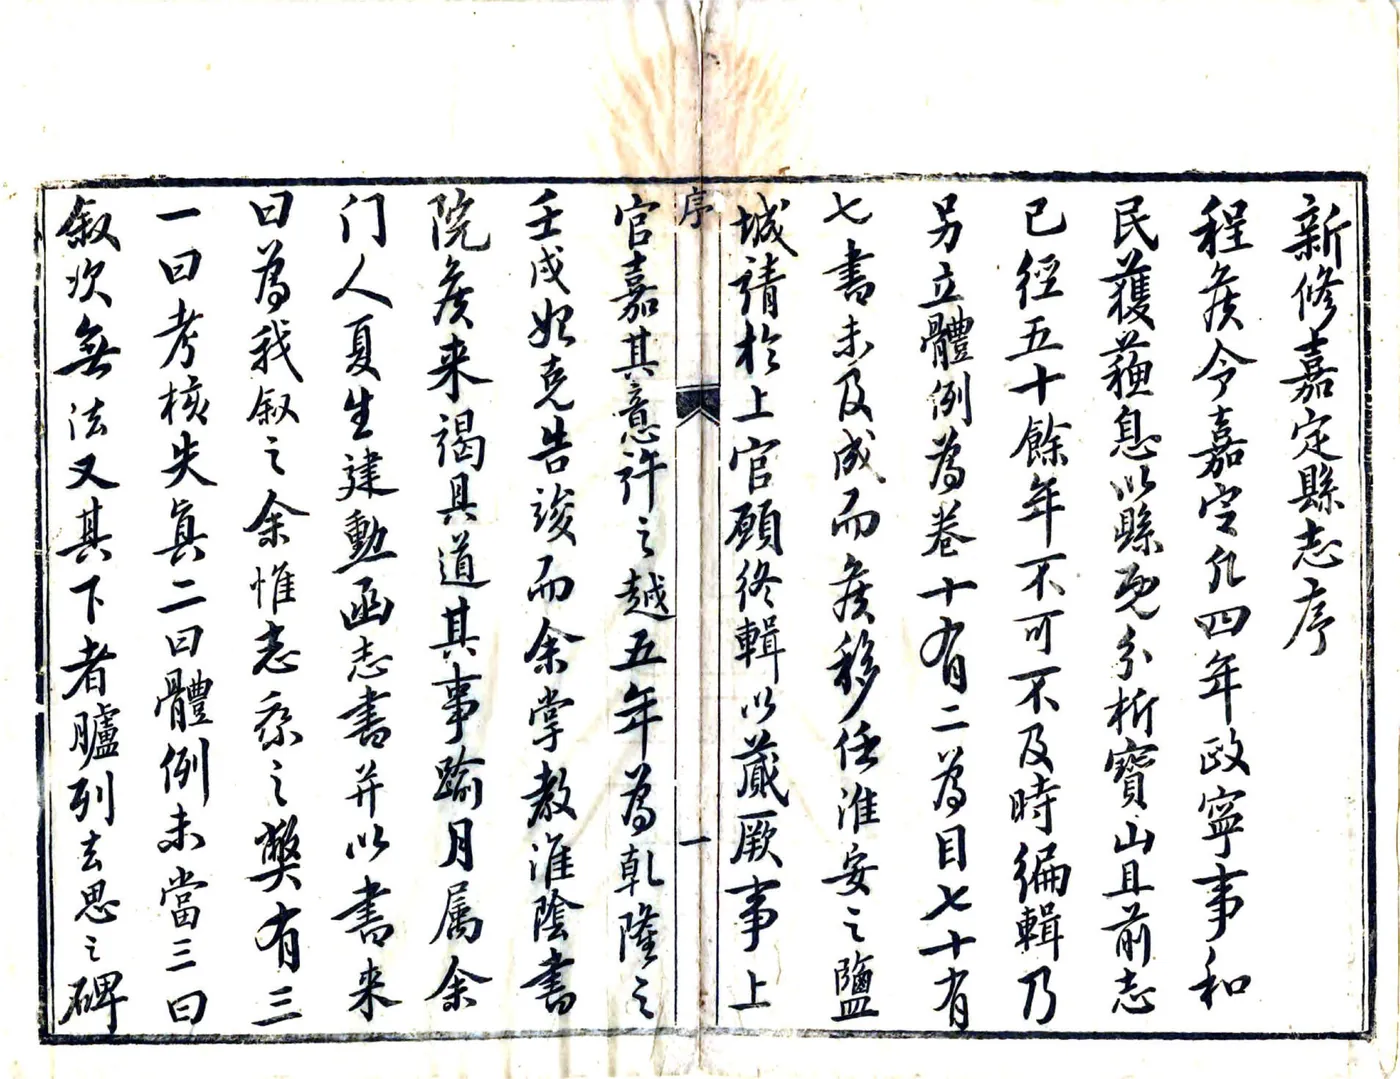 新修嘉定縣志序
程侯令嘉定凡四年政寧事和
民獲蘓息以縣既分析寶山且前志
已經五十餘年不可不及時编輯乃
另立體例為卷十有二為目七十有
七書未及成而侯移任淮安之鹽
城請於上官願終輯以蕆厥事上
序
一
官嘉其意許之越五年為乹隆之
壬戌始克告竣而余掌教淮陰書
院侯来謁具道其事踰月属余
门人夏生建勳函志書并以書来
曰為我叙之余惟志乘之弊有三
一曰考核失真二曰體例未當三曰
叙次無法又其下者臚列去思之碑